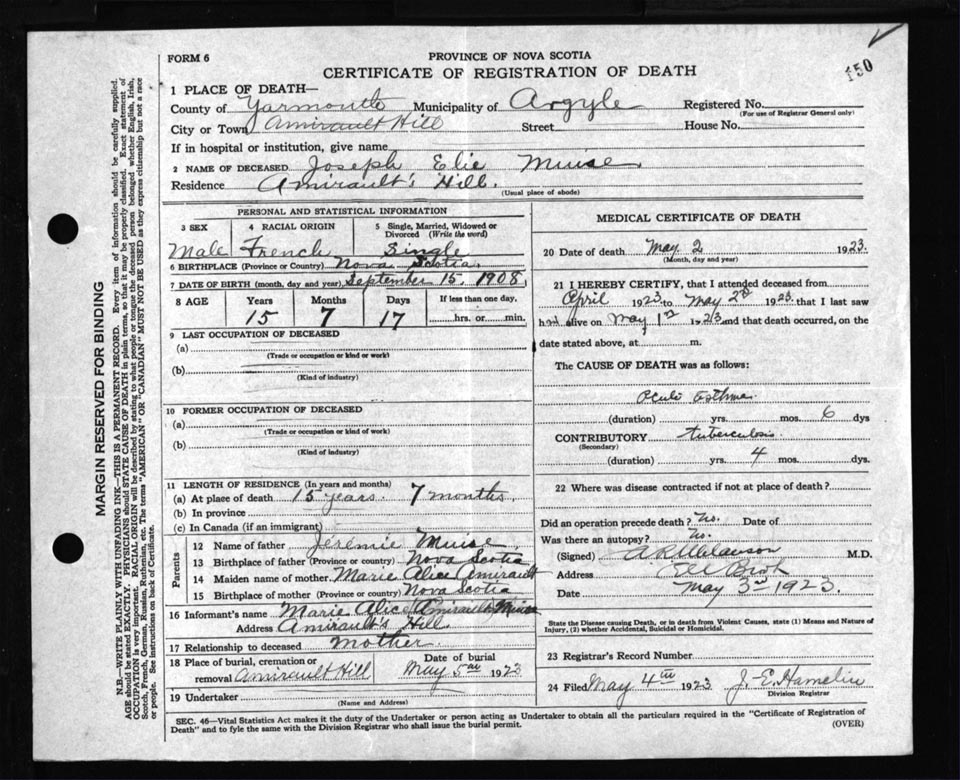 150
FORM 6
PROVINCE OF NOVA SCOTIA
CERTIFICATE OF REGISTRATION OF DEATH
1 PLACE OF DEATH—
County of Yarmouth Municipality of Argyle Registered No.
(For use of Registrar General only)
City or Town Amirault Hill Street House No.
If in hospital or institution, give name
2 NAME OF DECEASED Joseph Elie Muise
Residence Amirault's Hill.
(Usual place of abode)
PERSONAL AND STATISTICAL INFORMATION
3 SEX 4 RACIAL ORIGIN 5 Single, Married, Widowed or Divorced (Write the word)
Male French Single
6 BIRTHPLACE (Province or Country) Nova Scotia
7 DATE OF BIRTH (month, day and year) September 15, 1908
8 AGE Years Months Days If less than one day,
15 7 17 hrs. or min.
9 LAST OCCUPATION OF DECEASED
(a)
(Trade or occupation or kind or work)
(b)
(Kind of industry)
10 FORMER OCCUPATION OF DECEASED
(a)
(Trade or occupation or kind or work)
(b)
(Kind of industry)
11 LENGTH OF RESIDENCE (In years and months)
(a) At place of death 15 years. 7 months.
(b) In province
(c) In Canada (if an immigrant)
Parents
12 Name of father Jeremie Muise
13 Birthplace of father (Province or country) Nova Scotia
14 Maiden name of mother Marie Alice Amirault
15 Birthplace of mother (Province or country) Nova Scotia
16 Informant's name Marie Alice Amirault Muise
Address Amirault's Hill
17 Relationship to deceased mother
18 Place of burial, cremation or removal Amirault Hill Date of burial May 5th 1923
19 Undertaker
(Name and Address)
MEDICAL CERTIFICATE OF DEATH
20 Date of death May 2 1923.
(Month, day and year)
21 I HEREBY CERTIFY, that I attended deceased from
April 1923 to May 2nd 1923 that I last saw
alive on May 1st 1923 and that death occurred, on the
date stated above, at m.
The CAUSE OF DEATH was as follows:
Acute Asthma
(duration) yrs. mos. 6 dys
CONTRIBUTORY tuberculosis.
(Secondary)
(duration) yrs. 4 mos. dys.
22 Where was disease contracted if not at place of death?
Did an operation precede death? No. Date of
Was there an autopsy? No.
(Signed) M.D.
Address
Date May 3rd 1923.
State the Disease causing Death, or in death from Violent Causes, state (1) Means and Nature of Injury, (2) whether Accidental, Suicidal or Homicidal.
23 Registrar's Record Number
24 Filed May 4th 1923 J. E. Hamelin
Division Registrar
SEC. 46—Vital Statistics Act makes it the duty of the Undertaker or person acting as Undertaker to obtain all the particulars required in the "Certificate of Registration of
Death" and to fyle the same with the Division Registrar who shall issue the burial permit.
(OVER)
MARGIN RESERVED FOR BINDING
N.B.—WRITE PLAINLY WITH UNFADING INK—THIS IS A PERMANENT RECORD. Every item of information should be carefully supplied.
AGE should be stated EXACTLY. PHYSICIANS should STATE CAUSE OF DEATH in plain terms, so that it may be properly classified. Exact statement of
OCCUPATION is very important. RACIAL ORIGIN will be described by stating to what people or tongue the deceased person belonged whether English, Irish,
Scotch, French, German, Russian, Ruthenian, etc. The terms "AMERICAN" OR "CANADIAN" MUST NOT BE USED as they express citizenship but not a race
or people. See instructions on back of Certificate.